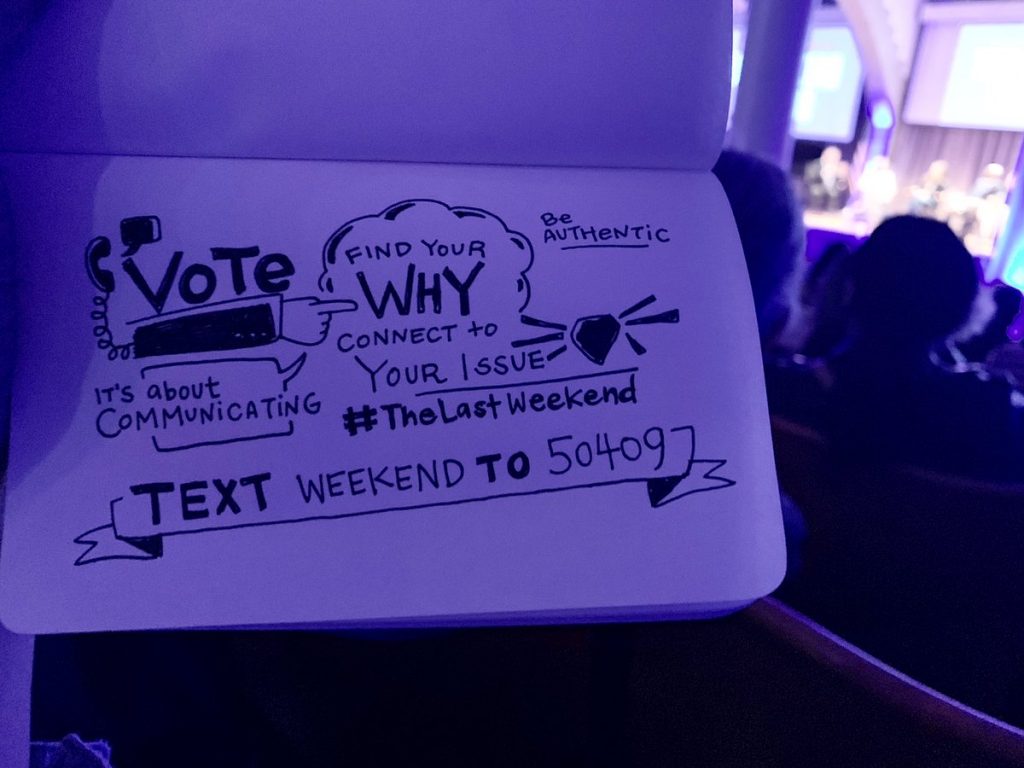 VOTe
FIND YOUR
WHY
CONNECT to
YOUR ISSUE
Be
AUTHENTIC
IT'S about
COMMUNICATING
#TheLastWeekend
TEXT WEEKEND TO 50409